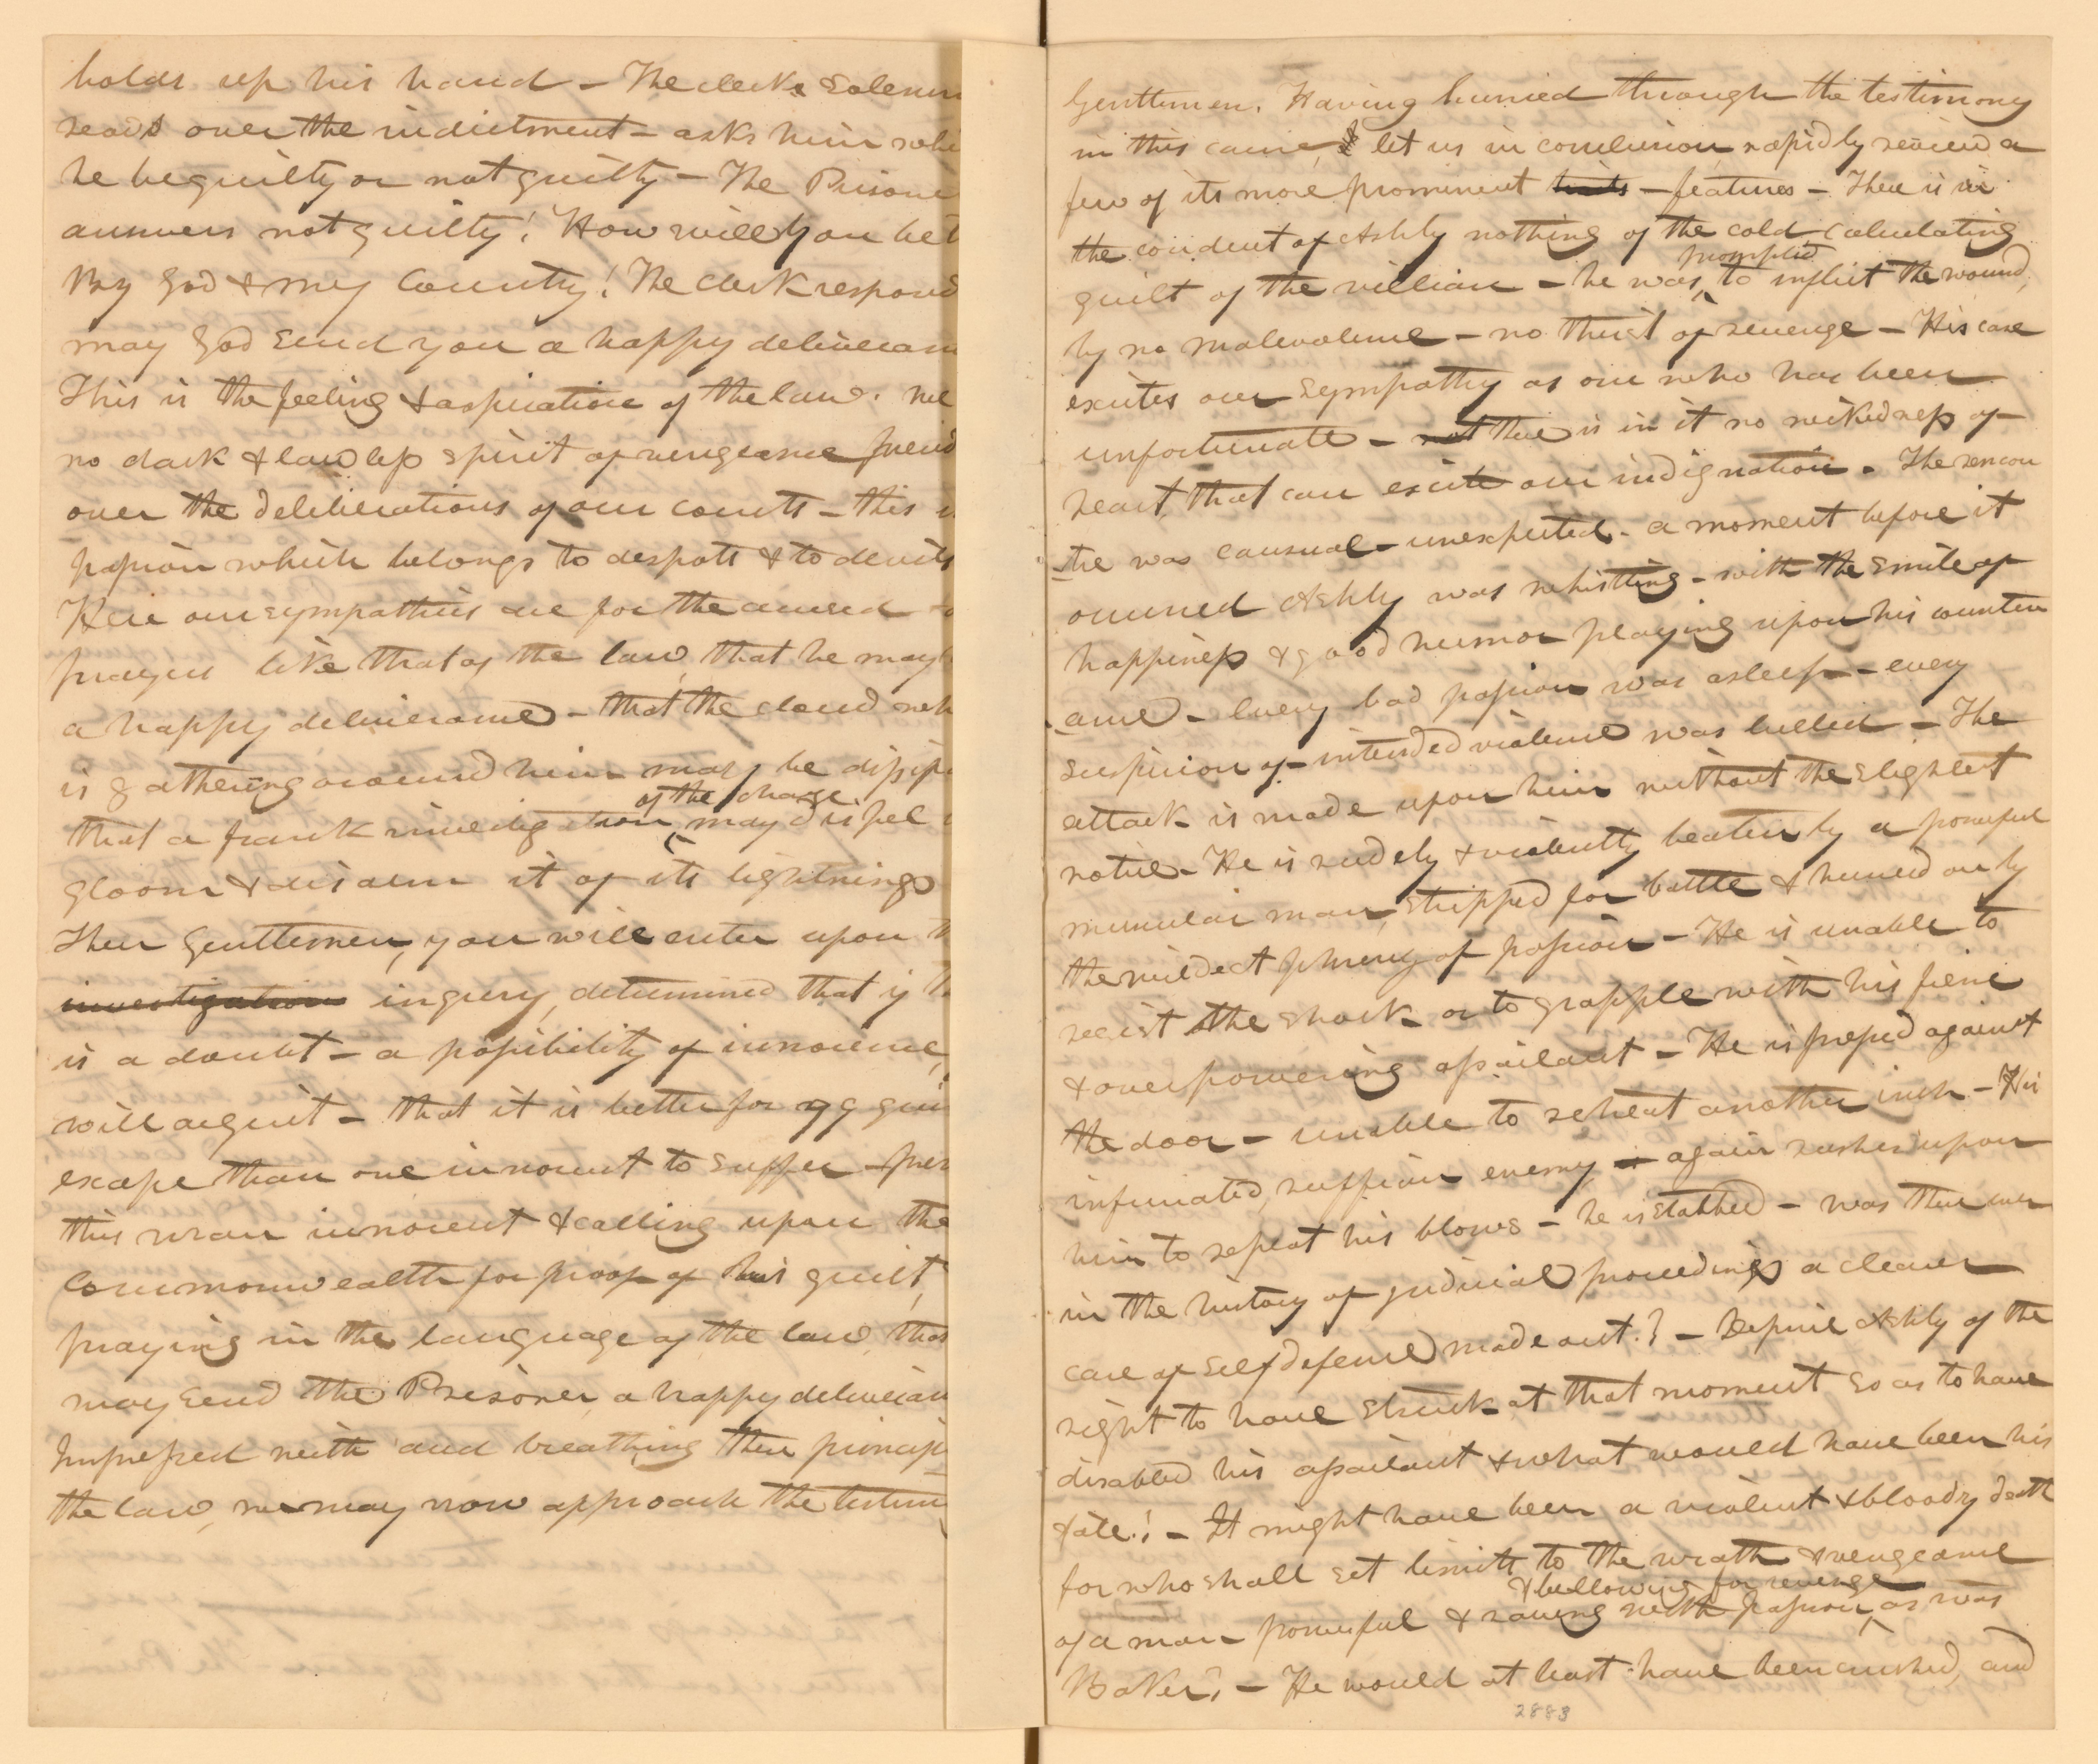 holds up his hand - The clerk solemn
reads over the indictment - asks him whe
he be guilty or not guilty - The Prisone
answers not guilty! How will you be t
By God & my Country! The clerk respond
may God send you a happy deliveran
This is the feeling & aspiration of the law. We
no dark & lawless spirit of vengeance presid
over the deliberations of our courts - this i
passion which belongs to despots & to devils
Here our sympathies are for the accused -
prayer like that of the law, that he may
a happy deliverance - that the cloud wh
is gathering around him may be dissip
of the charge
that a frank investigation may dispel
gloom & disarm it of its lightnings
Then Gentlemen, you will enter upon t
investigation inquiry, determined that if th
is a doubt - a possibility of innocence,
will acquit - that it is better for 99 guil
escape than one innocent to suffer - pres
this man innocent & calling upon the
Commonwealth for proof of his guilt,
praying in the language of the law, that
may send the Prisoner a happy deliveran
Impressed with and breathing these princip
the law, we may now approach the testim
Gentlemen. Having hurried through the testimony
in this cause, let us in conclusion rapidly review a
few of its more prominent traits - features - There is in
the conduct of Ashby nothing of the cold calculating
prompted
guilt of the villian - he was to inflict the wound,
by no malevolence - no thirst of revenge - His case
excites our sympathy as one who has been
unfortunate - not there is in it no wickedness of
heart, that can excite our indignation. The rencon
tre was causual - unexpected - a moment before it
occurred Ashby was whistling - with the smile of
happiness & good humor playing upon his counten
ance - Every bad passion was asleep - every
suspicion of intended violence was lulled - The
attack is made upon him without the slightest
notice - He is rudely & violently beaten by a powerful
muscular man, stripped for battle & hurried on by
the wildest phrenzy of passion - He is unable to
resist the shock or to grapple with his fierce
& overpowering assailant - He is pressed against
the door - unable to retreat another inch - His
infuriated, ruffian enemy again rushes upon
him to repeat his blows - he is stabbed - was there ever
in the history of judicial proceedings a clearer
case of self defence made out? - Deprive Ashby of the
right to have struck at that moment so as to have
disabled his assailant & what would have been his
fate! - It might have been a violent & bloody death
for who shall set limits to the wrath & vengeance
& bellowing for revenge
of a man powerful & raving with passion, as was
Baker? - He would at least have been crushed, and
2883